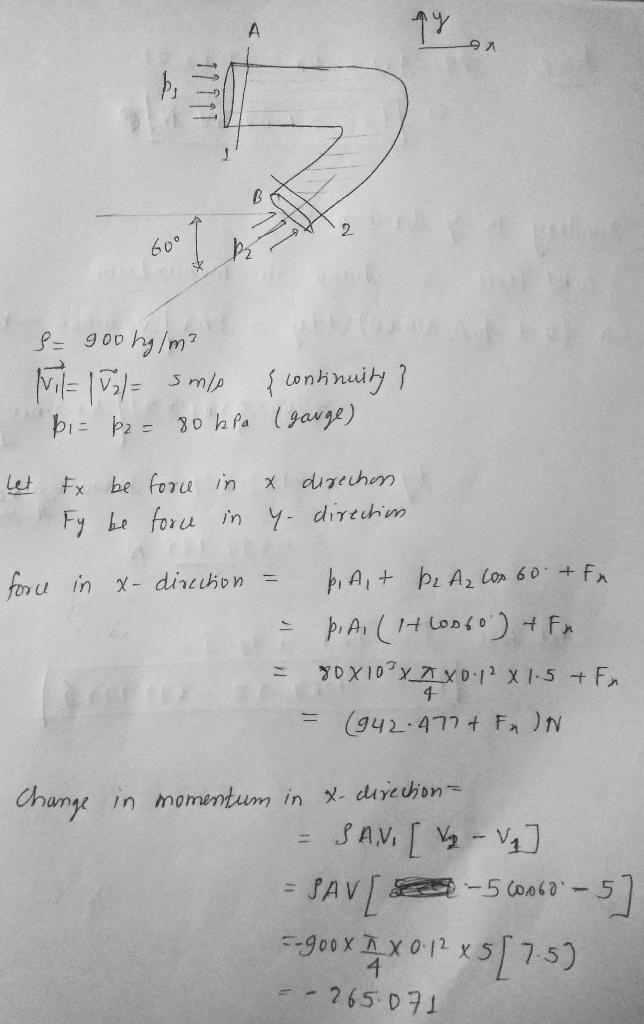 A
y
x
p₁
1
B
60°
p₂
2
ρ = 900 kg/m³
|V₁| = |V₂| = 5 m/s { continuity }
p₁ = p₂ = 80 kPa (gauge)
Let Fx be force in x direction
Fy be force in y-direction
force in x-direction = p₁A₁ + p₂A₂ cos 60° + Fx
= p₁A₁ (1+cos60°) + Fx
= 80×10³ × π/4 × 0.1² × 1.5 + Fx
= (942.477 + Fx) N
Change in momentum in x-direction =
= ρA₁V₁ [ V₂ - V₁ ]
= ρAV [ -5 cos60° - 5 ]
= -900 × π/4 × 0.1² × 5 [ 7.5 )
= - 265.071